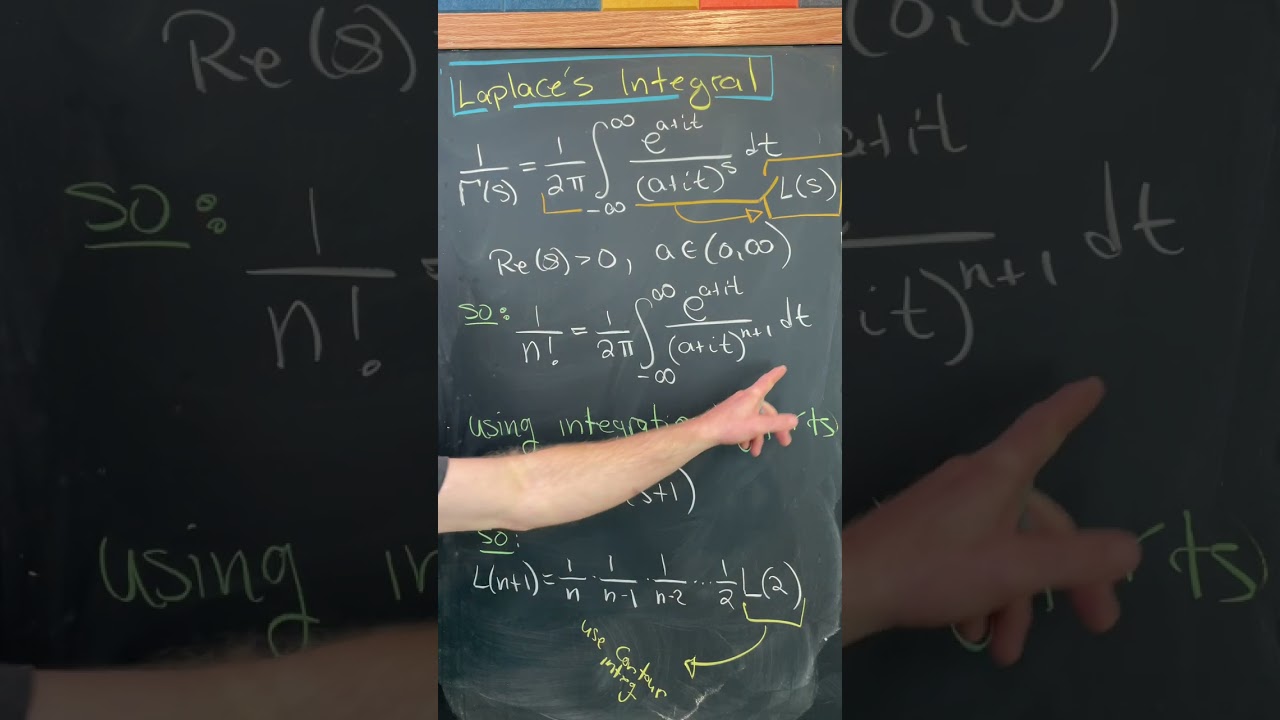 Laplace's Integral
1/Γ(s) = 1/2π ∫_{-∞}^{∞} e^{a+it}/(a+it)^s dt
L(s)
Re(s)>0, a∈(0,∞)
so: 1/n! = 1/2π ∫_{-∞}^{∞} e^{a+it}/(a+it)^{n+1} dt
using integration
(s+1)
so:
L(n+1) = 1/n · 1/n-1 · 1/n-2 ··· 1/2 L(2)
use contour